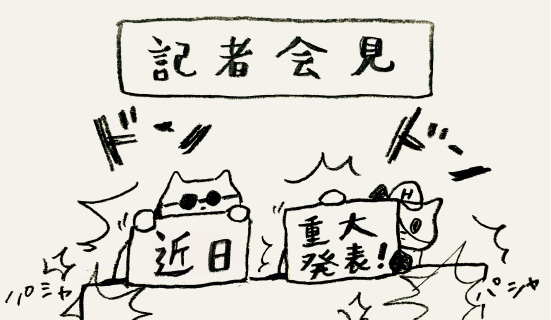 記者会見
ドーン
ドーン
H
近日
重大
発表!
パシャ
パシャ